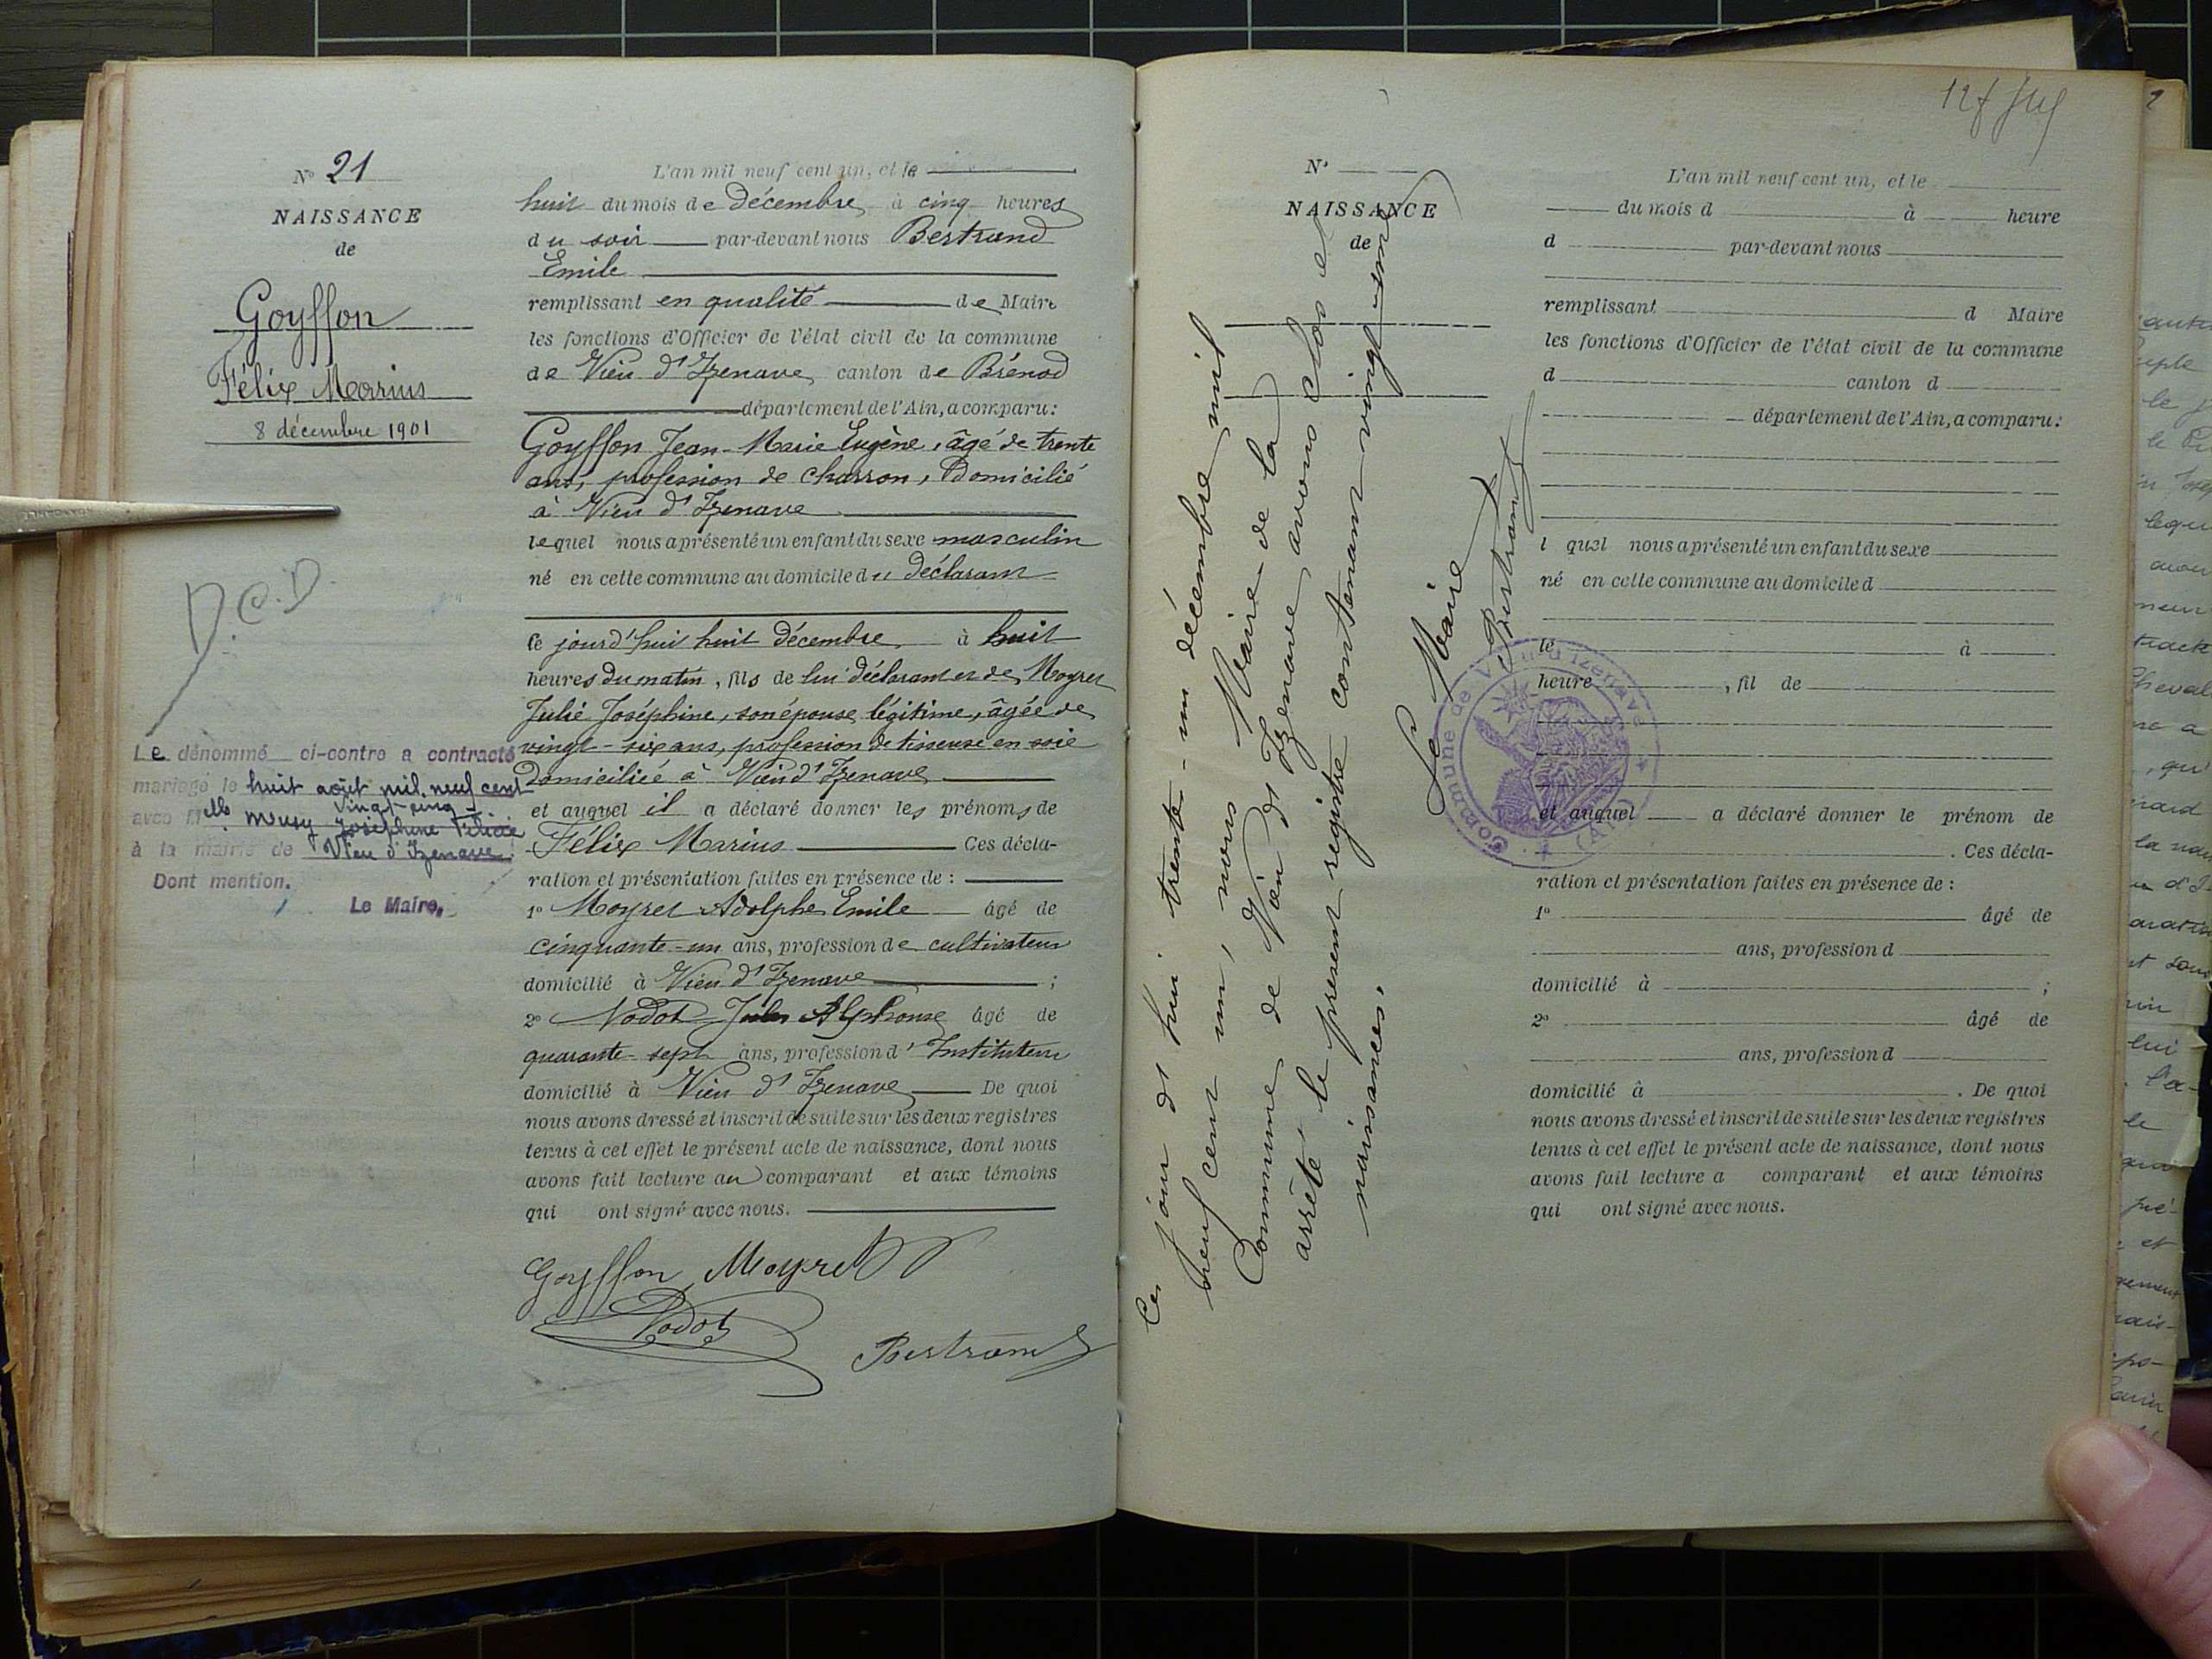 N° 21
NAISSANCE
de
Goyffon
Félix Marius
8 décembre 1901
D.C.D.
Le dénommé ci-contre a contracté
mariage le huit août mil neuf cent
vingt-cinq
avec Melle Musy Joséphine Félicie
à la mairie de Vieu d'Izenave.
Dont mention.
Le Maire,
L'an mil neuf cent un, et le
huit du mois de Décembre à cinq heures
du soir par-devant nous Bertrand
Emile
remplissant en qualité de Maire
les fonctions d'Officier de l'état civil de la commune
de Vieu d'Izenave, canton de Brénod
département de l'Ain, a comparu:
Goyffon Jean-Marie Eugène, âgé de trente
ans, profession de charron, Domicilié
à Vieu d'Izenave
lequel nous a présenté un enfant du sexe masculin
né en cette commune au domicile du Déclarant
le jourd'hui huit décembre à huit
heures du matin, fils de lui déclarant et de Moyret
Julie Joséphine, son épouse légitime, âgée de
vingt-six ans, profession de tisseuse en soie
domiciliée à Vieu d'Izenave
et auquel il a déclaré donner les prénoms de
Félix Marius Ces décla-
ration et présentation faites en présence de :
1° Moyret Adolphe Emile âgé de
cinquante-un ans, profession de cultivateur
domicilié à Vieu d'Izenave ;
2° Nodot Jules Alphonse âgé de
quarante-sept ans, profession d'Instituteur
domicilié à Vieu d'Izenave De quoi
nous avons dressé et inscrit de suite sur les deux registres
tenus à cet effet le présent acte de naissance, dont nous
avons fait lecture au comparant et aux témoins
qui ont signé avec nous.
Goyffon Moyret
Nodot
Bertrand
N°
NAISSANCE
de
Ce jour d'hui trente-un décembre mil
neuf cent un, nous Maire de la
Commune de Vieu d'Izenave avons clos et
arrêté le présent registre contenant vingt-une
naissances.
Le Maire
Bertrand
Commune de Vieu-d'Izenave
(Ain)
L'an mil neuf cent un, et le
du mois d à heure
d par-devant nous
remplissant d Maire
les fonctions d'Officier de l'état civil de la commune
d canton d
département de l'Ain, a comparu:
l quel nous a présenté un enfant du sexe
né en cette commune au domicile d
le à
heure , fil de
et auquel a déclaré donner le prénom de
. Ces décla-
ration et présentation faites en présence de :
1° âgé de
ans, profession d
domicilié à ;
2° âgé de
ans, profession d
domicilié à . De quoi
nous avons dressé et inscrit de suite sur les deux registres
tenus à cet effet le présent acte de naissance, dont nous
avons fait lecture a comparant et aux témoins
qui ont signé avec nous.